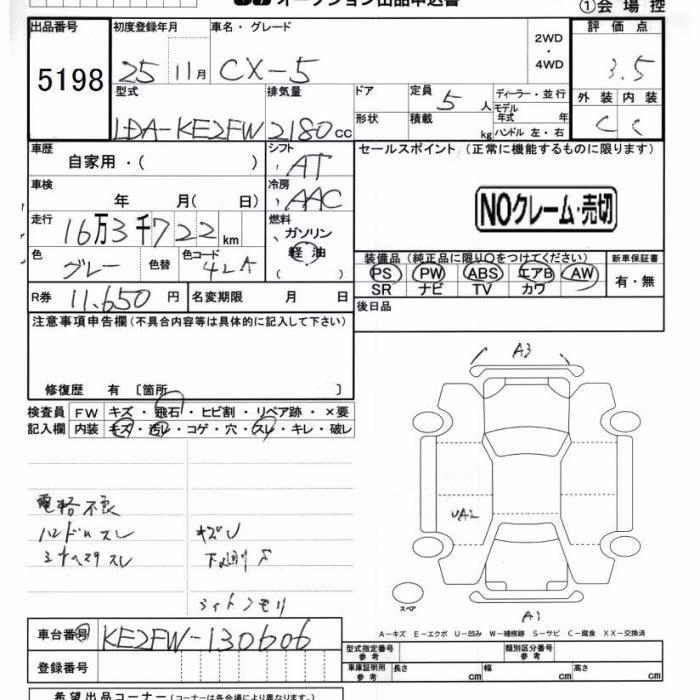 オークション出品申込書
①会場控
出品番号 初度登録年月 車名・グレード 2WD・4WD 評価点
5198 25 11月 CX-5 3.5
型式 排気量 ドア 定員 5人 ディーラー・並行 外装 内装
LDA-KE2FW 2180cc 形状 積載 kg モデル年式 年 ハンドル 左・右 C C
車歴 自家用・( ) シフト AT セールスポイント (正常に機能するものに限ります)
車検 年 月( 日) 冷房 AAC
NOクレーム・売切
走行 16万3千722km 燃料 ガソリン 軽油 ( )
色 グレー 色替 色コード 42A
装備品 (純正品に限り○をつけてください) 新車保証書
PS PW ABS エアB AW 有・無
SR ナビ TV カワ
R券 11,650円 名変期限 月 日 後日品
注意事項申告欄 (不具合内容等は具体的に記入して下さい)
修復歴 有 〔箇所 〕
検査員 FW キズ・飛石・ヒビ割・リペア跡・×要
記入欄 内装 キズ・汚レ・コゲ・穴・スレ・キレ・破レ
A3
電格不良
ハンドルスレ キズU
UA2
スペア
A1
A-キズ E-エクボ U-凹み W-補修跡 S-サビ C-腐食 XX-交換済
車台番号 KE2FW-130606
型式指定番号 参考 類別区分番号 参考
登録番号 車庫証明用 参考 長さ cm 幅 cm 高さ cm
希望出品コーナー (コーナーは各会場により異なります。)